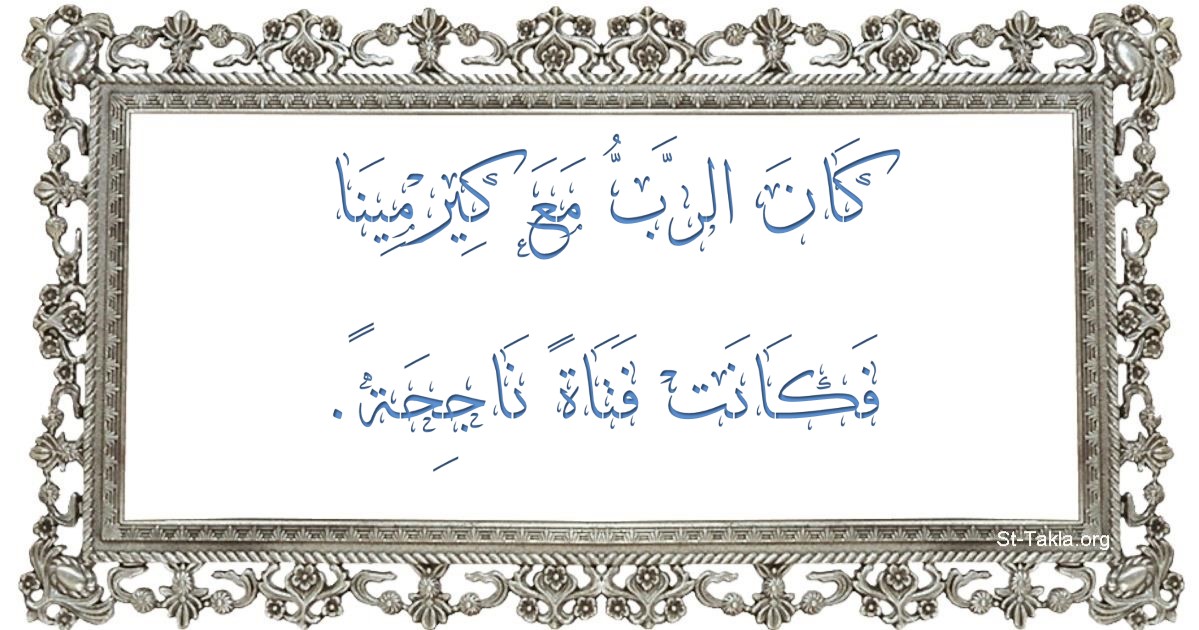 كَانَ الرَّبُّ مَعَ كِيرْمِينَا
فَكَانَتْ فَتَاةً نَاجِحَةً.
St-Takla.org